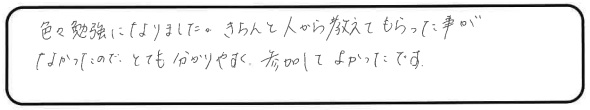 色々勉強になりました。きちんと人から教えてもらった事が
なかったので、とても分かりやすく、参加してよかったです。